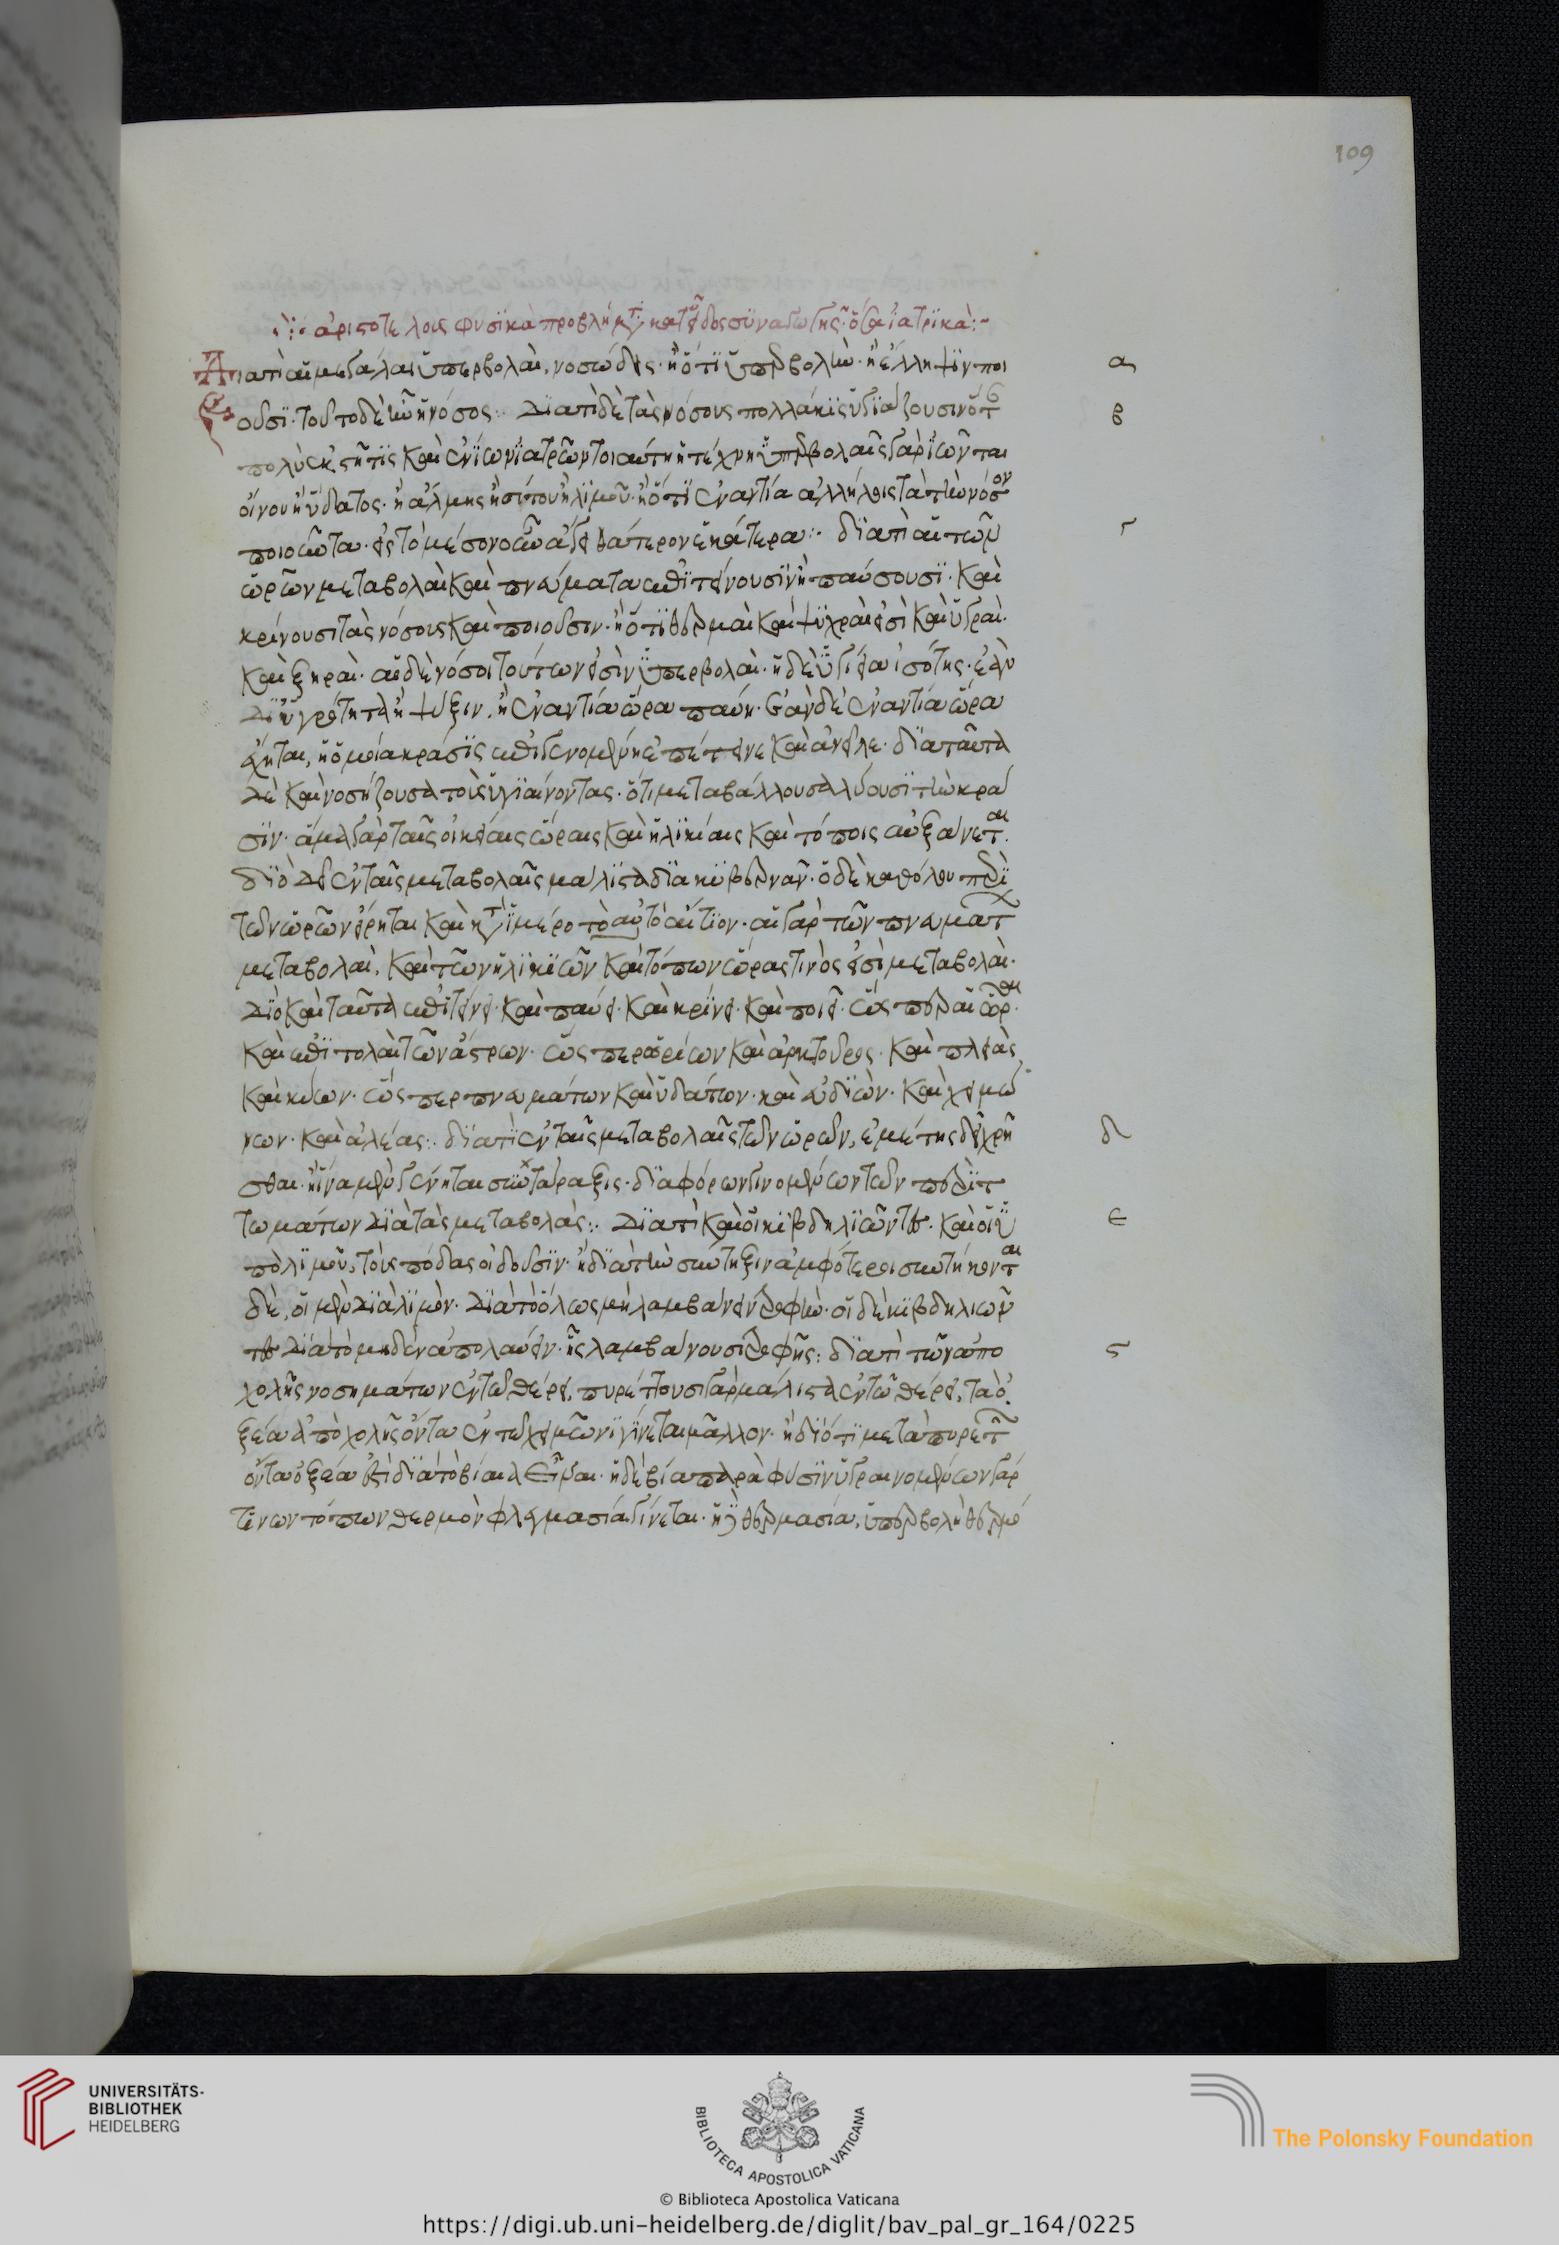 109
ἀριστοτέλους φυσϊκὰ προβλήματα κατ' εἶδος συναγωγῆς· ὅσα ἰατρϊκὰ:-
Διατὶ αἱ μεγάλαι ὑπερβολαὶ, νοσώδεις· ἢ ὅτι ὑπερβολὴν· ἢ ἔλλειψιν ποι α
οῦσϊ· τοῦτο δὲ ἦν ἡ νόσος:· Διατὶ δὲ τὰς νόσους πολλάκις ὑγιάζουσιν ὅτ β
πολὺ ἐκστῆ τις καὶ ἐνίων ἰατρῶν τοιαύτη ἡ τέχνη ὑπερβολαῖς γὰρ ἰῶνται
οἴνου ἢ ὕδατος· ἢ ἅλμης ἢ σίτου ἢ λιμοῦ· ἢ ὅτι ἐναντία ἀλλήλοις τὰ τὴν νόσον
ποιοῦντα· εἰς τὸ μέσον οὖν ἄγει θάτερον ἑκάτερα:· διατὶ αἱ τῶν γ
ὡρῶν μεταβολαὶ καὶ πνεύματα ἐπιτείνουσιν ἢ παύουσι· καὶ
κρίνουσι τὰς νόσους καὶ ποιοῦσιν· ἢ ὅτι θερμαὶ καὶ ψυχραὶ εἰσὶ καὶ ὑγραὶ·
καὶ ξηραὶ· αἱ δὲ νόσοι τούτων εἰσὶν ὑπερβολαὶ· ἡ δὲ ὑγίεια ἰσότης· ἐὰν
δι' ὑγρότητα ἢ ψύξιν, ἡ ἐναντία ὥρα παύει· ἐὰν δὲ ἐναντία ὥρα
ἔχηται, ἡ ὁμοία κράσις ἐπιγενομένη ἐπέτεινε καὶ ἀνεῖλε· διὰ ταῦτα
δὲ καὶ νοσηάζουσα τοὺς ὑγιαίνοντας· ὅτι μεταβάλλουσα λύουσι τὴν κρα
σϊν· ἅμα γὰρ ταῖς οἰκείαις ὥραις καὶ ἡλικίαις καὶ τόποις αὐξάνεται·
διὸ δεῖ ἐν ταῖς μεταβολαῖς μάλιστα διακυβερνᾶν· ὃ δὲ καθόλου περὶ
τῶν ὡρῶν εἴρηται καὶ κατὰ μέρο τὸ αὐτὸ αἴτιον· αἱ γὰρ τῶν πνευμάτ
μεταβολαὶ, καὶ τῶν ἡλικιῶν καὶ τόπων ὥρας τινὸς εἰσὶ μεταβολαὶ·
διὸ καὶ ταῦτα ἐπιτείνει· καὶ παύει· καὶ κρίνει· καὶ ποιεῖ· ὥσπερ αἱ ὧραι·
καὶ ἐπιτολαὶ τῶν ἄστρων· ὥσπερ ὠρίων καὶ ἀρκτοῦρος· καὶ πλειὰς
καὶ κύων· ὥσπερ πνευμάτων καὶ ὑδάτων· καὶ εὐδιῶν· καὶ χειμώ
νων· καὶ ἀλέας:· διατὶ ἐν ταῖς μεταβολαῖς τῶν ὡρῶν, ἐμέτης δεῖ χρῆ δ
σθαι· ἢ ἵνα μὴ γένηται συντάραξις· διαφόρων γινομένων τῶν περιτ
τωμάτων διὰ τὰς μεταβολὰς:· Διατὶ καὶ οἱ κιβδηλιῶντες· καὶ οἱ ὑ ε
πὸ λιμοῦ, τοὺς πόδας οἰδοῦσϊν· ἢ διὰ τὴν σύντηξιν ἀμφότεροι συντήκονται
δὲ, οἱ μὲν διὰ λιμὸν· διὰ τὸ ὅλως μὴ λαμβάνειν τροφὴν· οἱ δὲ κιβδηλιῶν
τες διὰ τὸ μηδὲν ἀπολαύειν· ἧς λαμβάνουσι τροφῆς: διατὶ τῶν ἀπὸ ς
χολῆς νοσημάτων ἐν τῶ θέρει, πυρέττουσι γὰρ μάλιστα ἐν τῶ θέρει, τὰ ὀ
ξέα ἀπὸ χολῆς ὄντα ἐν τῶ χειμῶνι γίνεται μᾶλλον· ἢ διότι μετὰ πυρετ
ὄντα ὀξέα ἐστὶ διὰ τὸ βίαια εἶναι· ἡ δὲ βία παρὰ φύσϊν ὑγραινομένων γάρ
τινων τόπων θερμὸν φλεγμασία γίνεται· ἡ θερμασία, ὑπερβολὴ θερμό
UNIVERSITÄTS-
BIBLIOTHEK
HEIDELBERG
BIBLIOTECA APOSTOLICA VATICANA
The Polonsky Foundation
© Biblioteca Apostolica Vaticana
https://digi.ub.uni-heidelberg.de/diglit/bav_pal_gr_164/0225